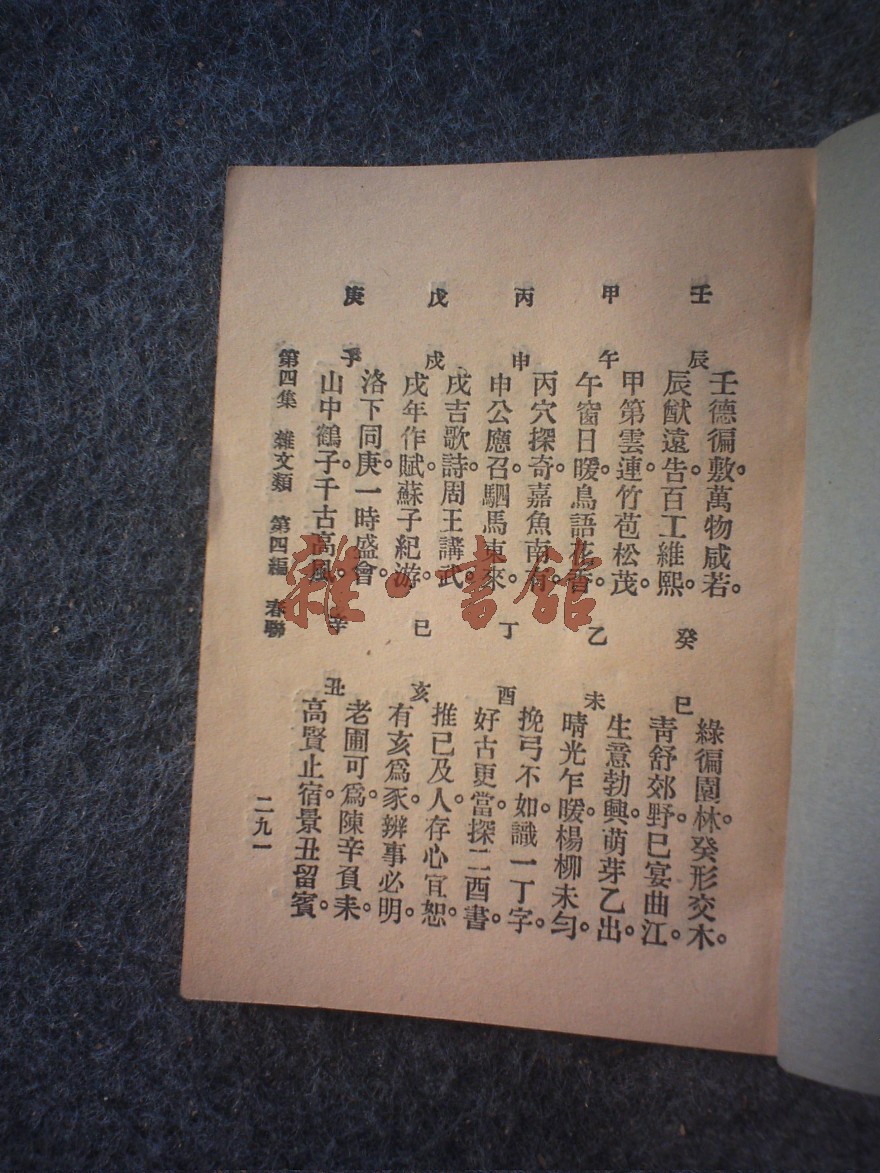 壬辰
壬德徧敷。萬物咸若。
辰猷遠告。百工維熙。
甲午
甲第雲連。竹苞松茂。
午窗日暖。鳥語花香。
丙申
丙穴探奇。嘉魚南有。
申公應召。駟馬東來。
戊戌
戊吉歌詩。周王講武。
戌年作賦。蘇子紀游。
庚子
洛下同庚。一時盛會。
山中鶴子。千古高風。
癸巳
綠徧園林。癸形交木。
靑舒郊野。巳宴曲江。
乙未
生意勃興。萌芽乙出。
晴光乍暖。楊柳未勻。
丁酉
挽弓不如識一丁字。
好古更當探二酉書。
己亥
推己及人。存心宜恕。
有亥爲豕。辨事必明。
辛丑
老圃可爲。陳辛負耒。
高賢止宿。景丑留賓。
第四集 雜文類 第四編 春聯
二九一
雜·書館